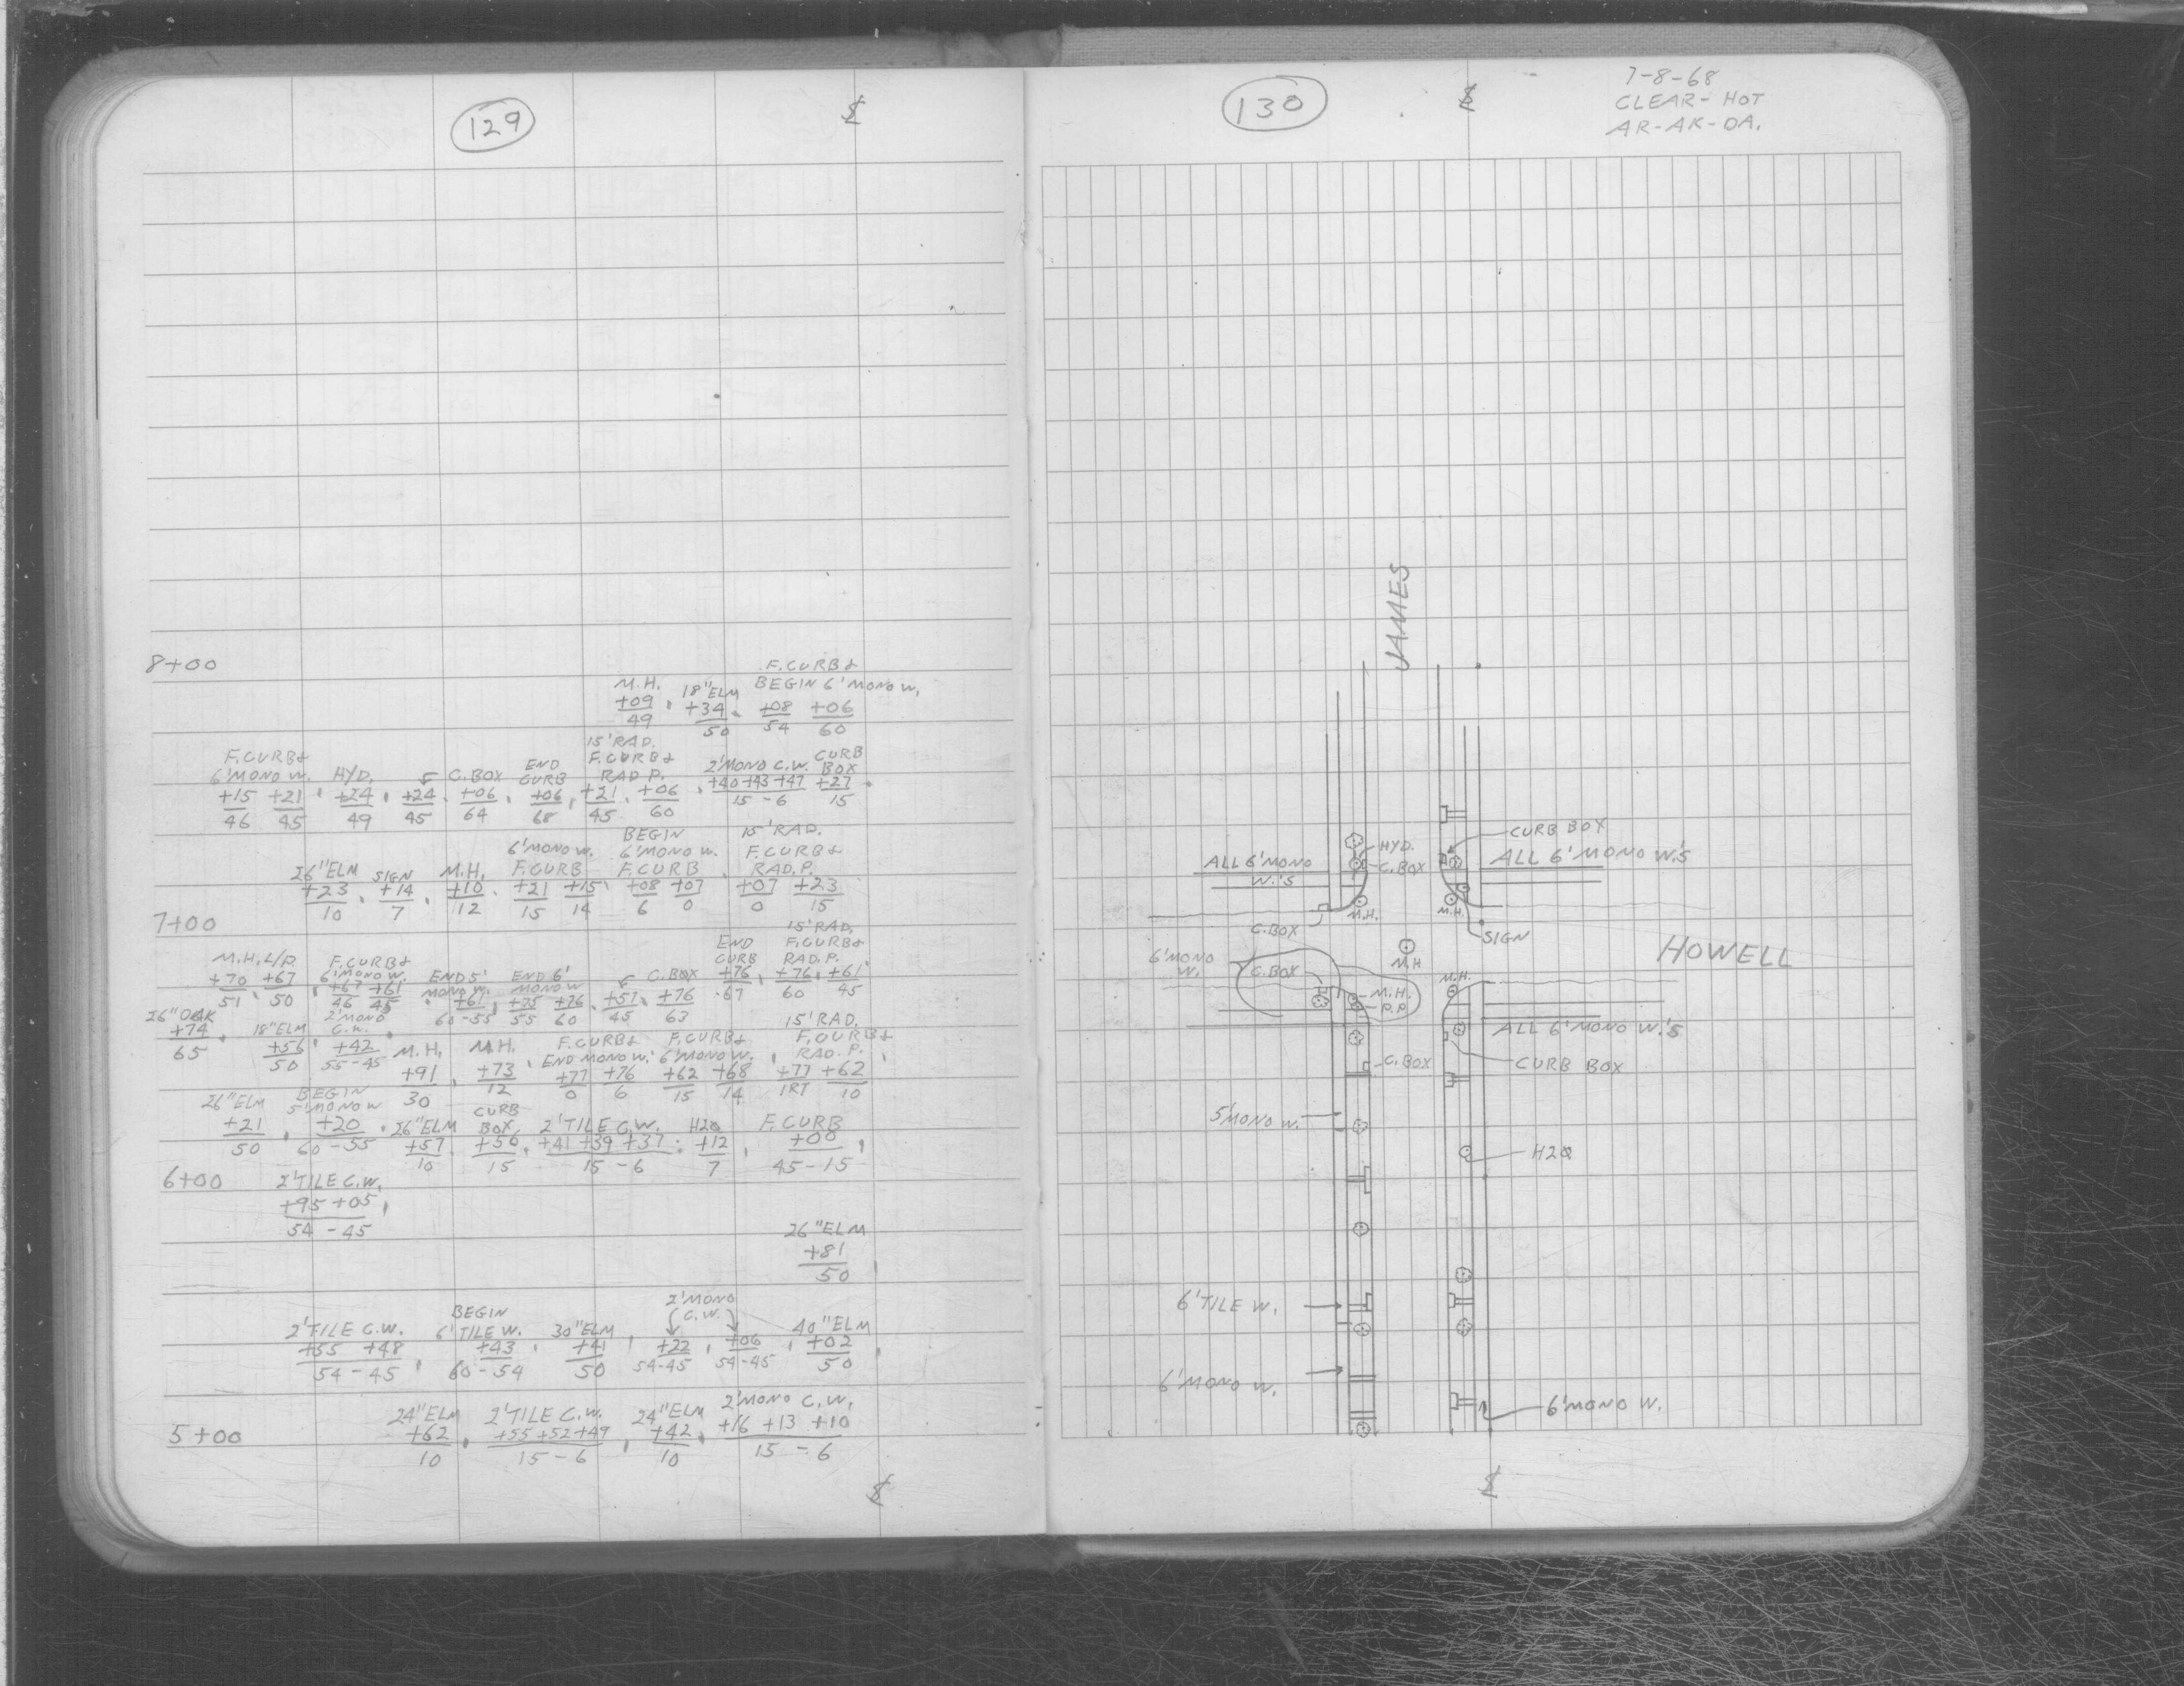 129
8+00
F.CURB &
M.H. 18"ELM BEGIN 6'MONO W.
+09 +34 +08 +06
49 50 54 60
15'RAD.
F.CURB & END F.CURB & CURB
6'MONO W. HYD. C.BOX CURB RAD P. 2'MONO C.W. BOX
+15 +21 +24 +24 +06 +06 +21 +06 +40 +43 +47 +27
46 45 49 45 64 68 45 60 15 - 6 15
BEGIN 15'RAD.
6'MONO W. 6'MONO W. F.CURB &
26"ELM SIGN M.H. F.CURB F.CURB RAD.P.
+23 +14 +10 +21 +15 +08 +07 +07 +23
10 7 12 15 14 6 0 0 15
7+00
15'RAD.
M.H. L/P. F.CURB & END F.CURB &
6'MONO W. END 5' END 6' C.BOX CURB RAD.P.
MONO W. MONO W
+70 +67 +67 +61 +61 +75 +76 +57 +76 +76 +76 +61
51 50 46 45 60-55 55 60 45 63 67 60 45
26"OAK 2'MONO 15'RAD.
+74 18"ELM C.W. M.H. M.H. F.CURB & F.CURB & F.CURB &
65 +56 +42 END MONO W. 6'MONO W. RAD.P.
50 55-45 +91 +73 +77 +76 +62 +68 +77 +62
30 12 0 6 15 14 1RT 10
BEGIN CURB
26"ELM 5'MONO W 26"ELM BOX 2'TILE C.W. H20 F.CURB
+21 +20 +57 +50 +41 +39 +37 +12 +00
50 60-55 10 15 15-6 7 45-15
6+00 2'TILE C.W.
+95 +05
54 - 45
26"ELM
+81
50
2'MONO
BEGIN C.W.
2'TILE C.W. 6'TILE W. 30"ELM 40"ELM
+55 +48 +43 +41 +22 +06 +02
54 - 45 60-54 50 54-45 54-45 50
2'MONO C.W.
24"ELM 2'TILE C.W. 24"ELM +16 +13 +10
5+00 +62 +55 +52 +49 +42 15 - 6
10 15 - 6 10
130
7-8-68
CLEAR - HOT
AR-AK-DA.
JAMES
CURB BOX
HYD.
ALL 6'MONO W.'S
C.BOX
ALL 6'MONO W.'S
M.H.
M.H.
C.BOX
SIGN
HOWELL
6'MONO W.
M.H
C.BOX
M.H.
M.H.
P.P.
ALL 6'MONO W.'S
C.BOX
CURB BOX
5'MONO W.
H20
6'TILE W.
6'MONO W.
6'MONO W.